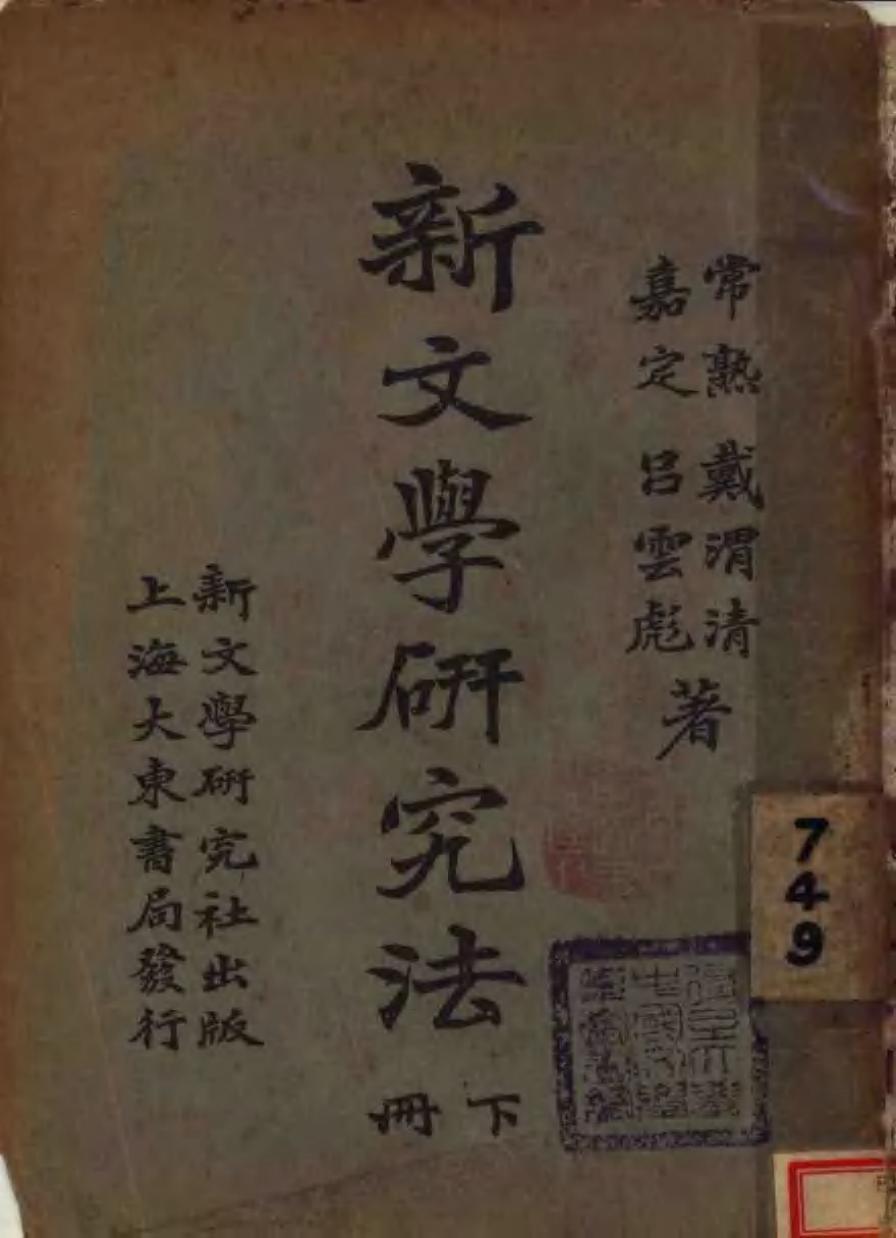 常熟 戴渭清
嘉定 呂雲彪
著
新文學研究法
下冊
新文學研究社出版
上海大東書局發行
749